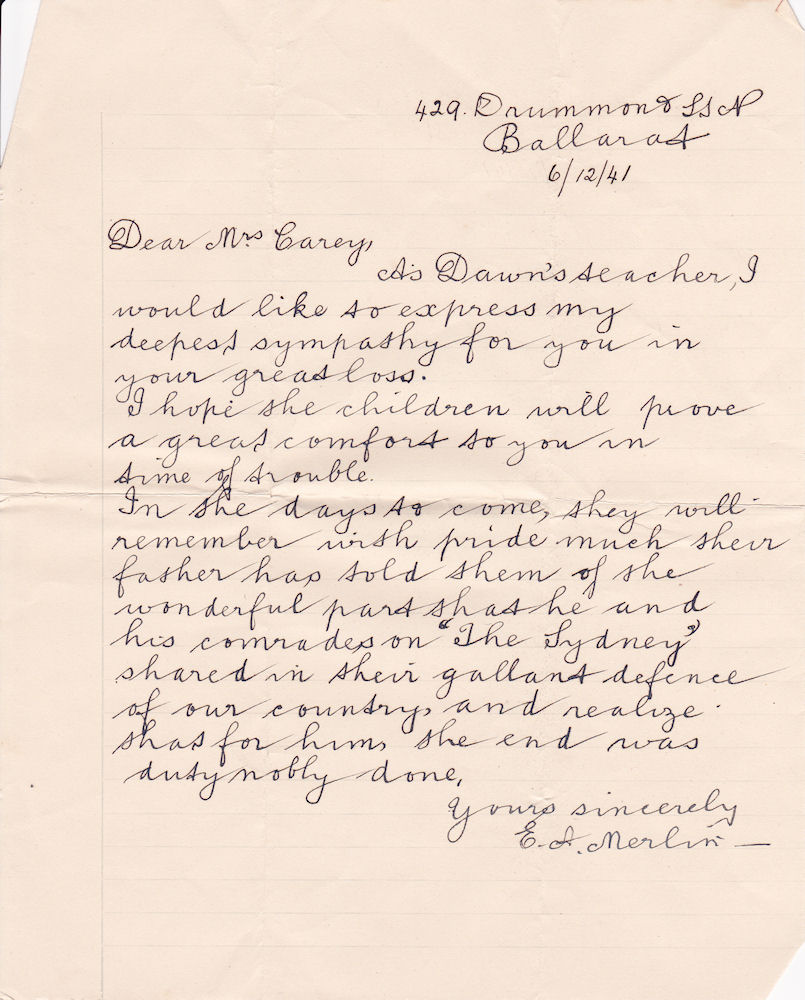 429. Drummond St N
Ballarat
6/12/41
Dear Mrs Carey,
As Dawn's teacher, I
would like to express my
deepest sympathy for you in
your great loss.
I hope the children will prove
a great comfort to you in
time of trouble.
In the days to come, they will
remember with pride much their
father has told them of the
wonderful part that he and
his comrades on "The Sydney"
shared in their gallant defence
of our country, and realize
that for him, the end was
duty nobly done.
Yours sincerely
E. A. Merlin